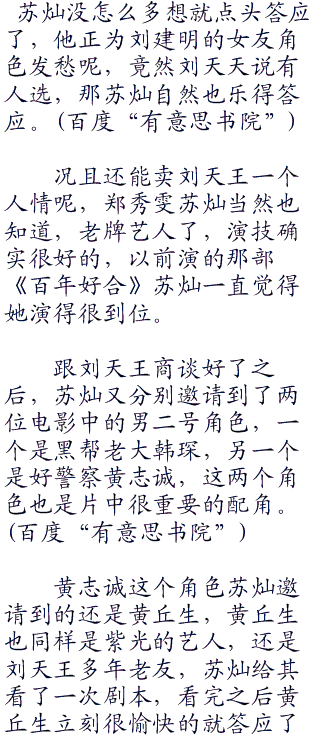 苏灿没怎么多想就点头答应
了，他正为刘建明的女友角
色发愁呢，竟然刘天天说有
人选，那苏灿自然也乐得答
应。(百度“有意思书院”)
况且还能卖刘天王一个
人情呢，郑秀雯苏灿当然也
知道，老牌艺人了，演技确
实很好的，以前演的那部
《百年好合》苏灿一直觉得
她演得很到位。
跟刘天王商谈好了之
后，苏灿又分别邀请到了两
位电影中的男二号角色，一
个是黑帮老大韩琛，另一个
是好警察黄志诚，这两个角
色也是片中很重要的配角。
(百度“有意思书院”)
黄志诚这个角色苏灿邀
请到的还是黄丘生，黄丘生
也同样是紫光的艺人，还是
刘天王多年老友，苏灿给其
看了一次剧本，看完之后黄
丘生立刻很愉快的就答应了